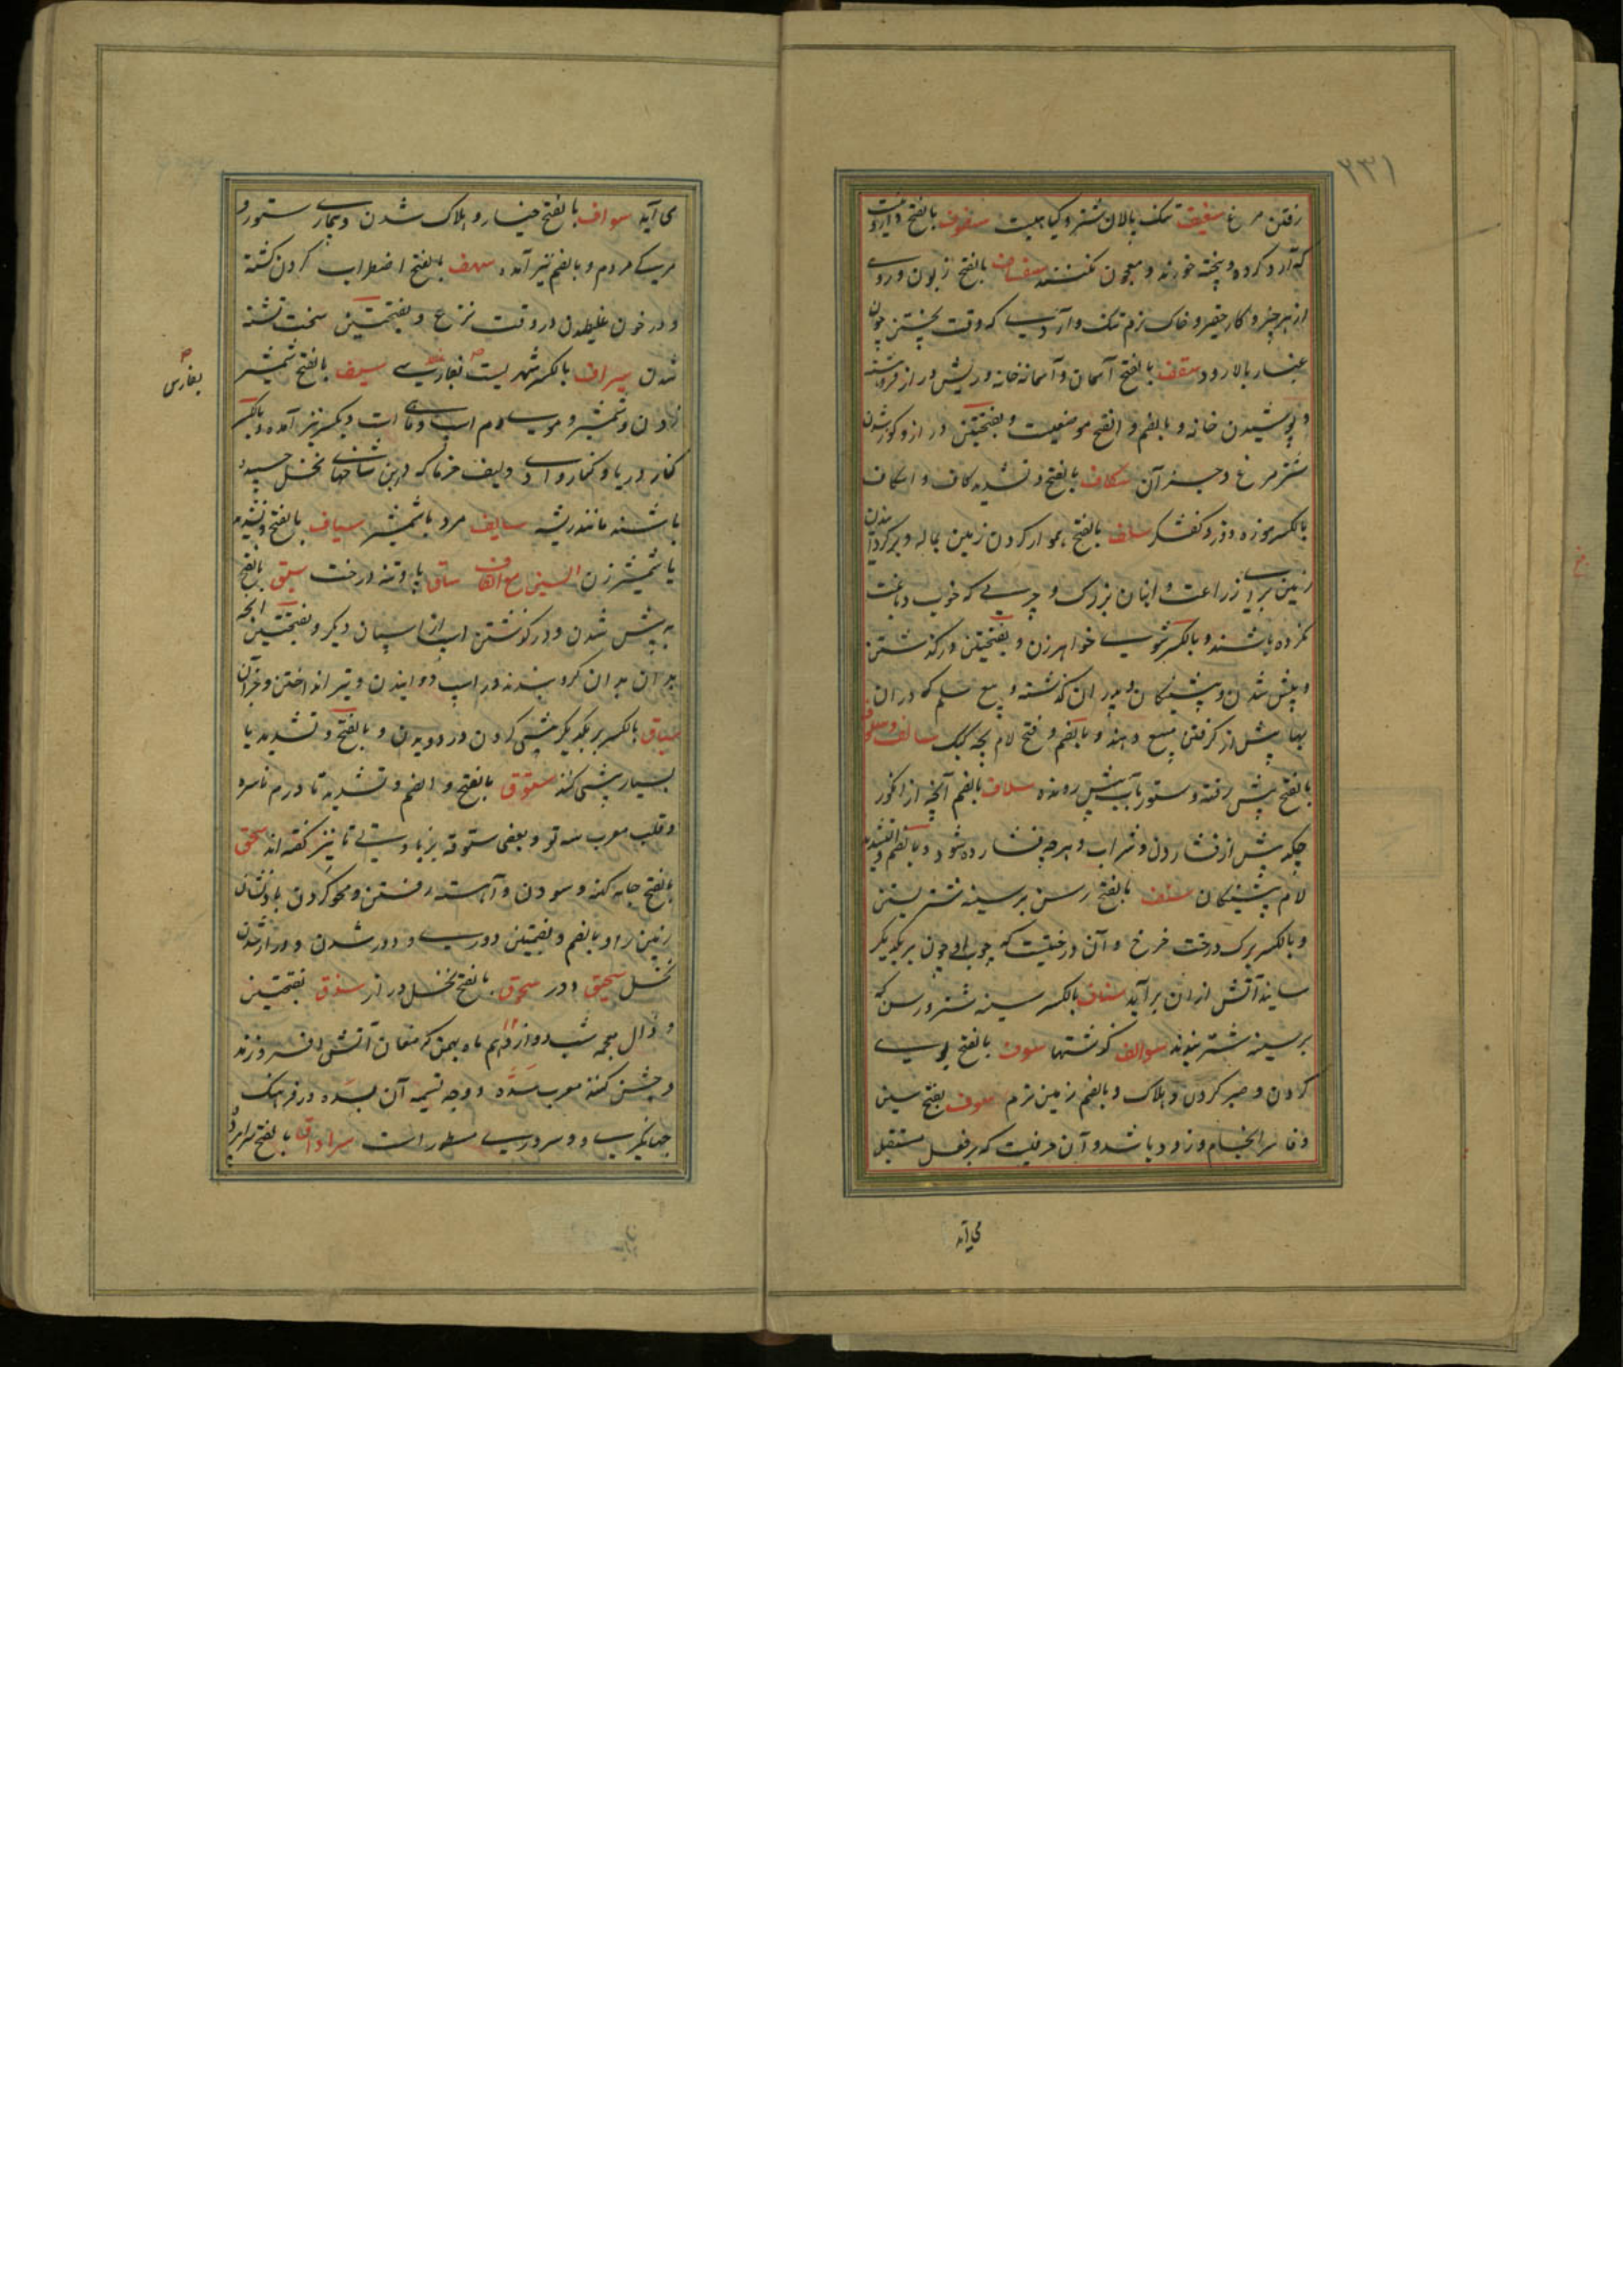 ۲۳۱
رفتن مرغ سفیف تنک پالان شتر و گیاهیست سفوف بالفتح داروئیست
که آرد کرده و پخته خورند و معجون نکنند سفساف بالفتح زبون و ردی
از هر چیز و کار حقیر و خاک نرم تنک و آرد که وقت بیختن چون
غبار بالا رود سقف بالفتح آسمان و آسمانه خانه و ریش دراز فروهشته
و پوشیدن خانه و بالضم و الفتح موضعیست و بفتحتین دراز و کوژ شدن
شترمرغ و جز آن سکاف بالفتح و تشدید کاف و اسکاف
بالکسر موزه دوز و کفشگر سلف بالفتح هموار کردن زمین بماله و برگردانیدن
زمین برای زراعت و انبان بزرگ و چرمی که خوب دباغت
نکرده باشند و بالکسر شوی خواهر زن و بفتحتین درگذشتن
و پیش شدن و پیشینگان و پدران گذشته و بیع سلم که در آن
بها پیش از گرفتن مبیع دهند و بالضم و فتح لام بچه کبک سالف و سلوف
بالفتح پیش رفته و ستور بآب پیش رونده سلاف بالضم آنچه از انگور
چکد پیش از فشاردن و شراب و هرچه فشارده شود و بالضم و التشدید
لام پیشینگان سنف بالفتح رسن بر سینه شتر بستن
و بالکسر برگ درخت مرخ و آن درختیست که چوب او چون بر یکدیگر
سایند آتش از ان برآید سناف بالکسر سینه شتر و رسن که
بر سینه شتر بندند سوالف گذشتها سوف بالفتح بوی
کردن و صبر کردن و هلاک و بالضم زمین نرم سوف بفتح سین
و فا سرانجام و زود باشد و آن حرفیست که بر فعل مستقبل
می آید
می آید سواف بالفتح خیار و هلاک شدن و بیماری ستور و
مرگ مردم و بالضم نیز آمده سهف بالفتح اضطراب کردن کشته
و در خون غلطیدن در وقت نزع و بفتحتین سخت تشنه
شدن سیراف بالکسر شهریست بفارس سیف بالفتح شمشیر
زدن و شمشیر و موی دم اسپ و ماهی است و بکسر نیز آمده و بالکسر
کنار دریا و کنار وادی و لیف خرما که در بن شاخهای نخل چسپیده
باشند مانند ریشه سایف مرد با شمشیر سیاف بالفتح و تشدید
یا شمشیر زن السین مع القاف ساق پا و تنه درخت سبق بالفتح
به پیش شدن و درگذشتن اسپ از اسپان دیگر و بفتحتین آنچه
بران بدان گرو بندند در اسپ دوانیدن و تیر انداختن و جز آن
سباق بالکسر بر یکدیگر پیشی کردن در دویدن و بالفتح و تشدید با
بسیار پیشی کننده ستوق بالفتح و الضم و تشدید تا درم ناسره
و قلب معرب سه تو و بعضی ستوقه بزیادتی تا نیز گفته اند سحق
بالفتح جامه کهنه و سودن و آهسته رفتن و محو کردن باد نشان
زمین را و بالضم و بضمتین دوری و دور شدن و دراز شدن
نخل سحیق دور سحوق بالفتح نخل دراز سذق بفتحتین
و ذال معجمه شب دوازدهم ماه بهمن که مغان آتش افروزند
و جشن کنند معرب سده و وجه تسمیه آن بسده در فرهنگ
جهانگیری و سروری مسطور است سرادق بالفتح سراپرده
بفارس